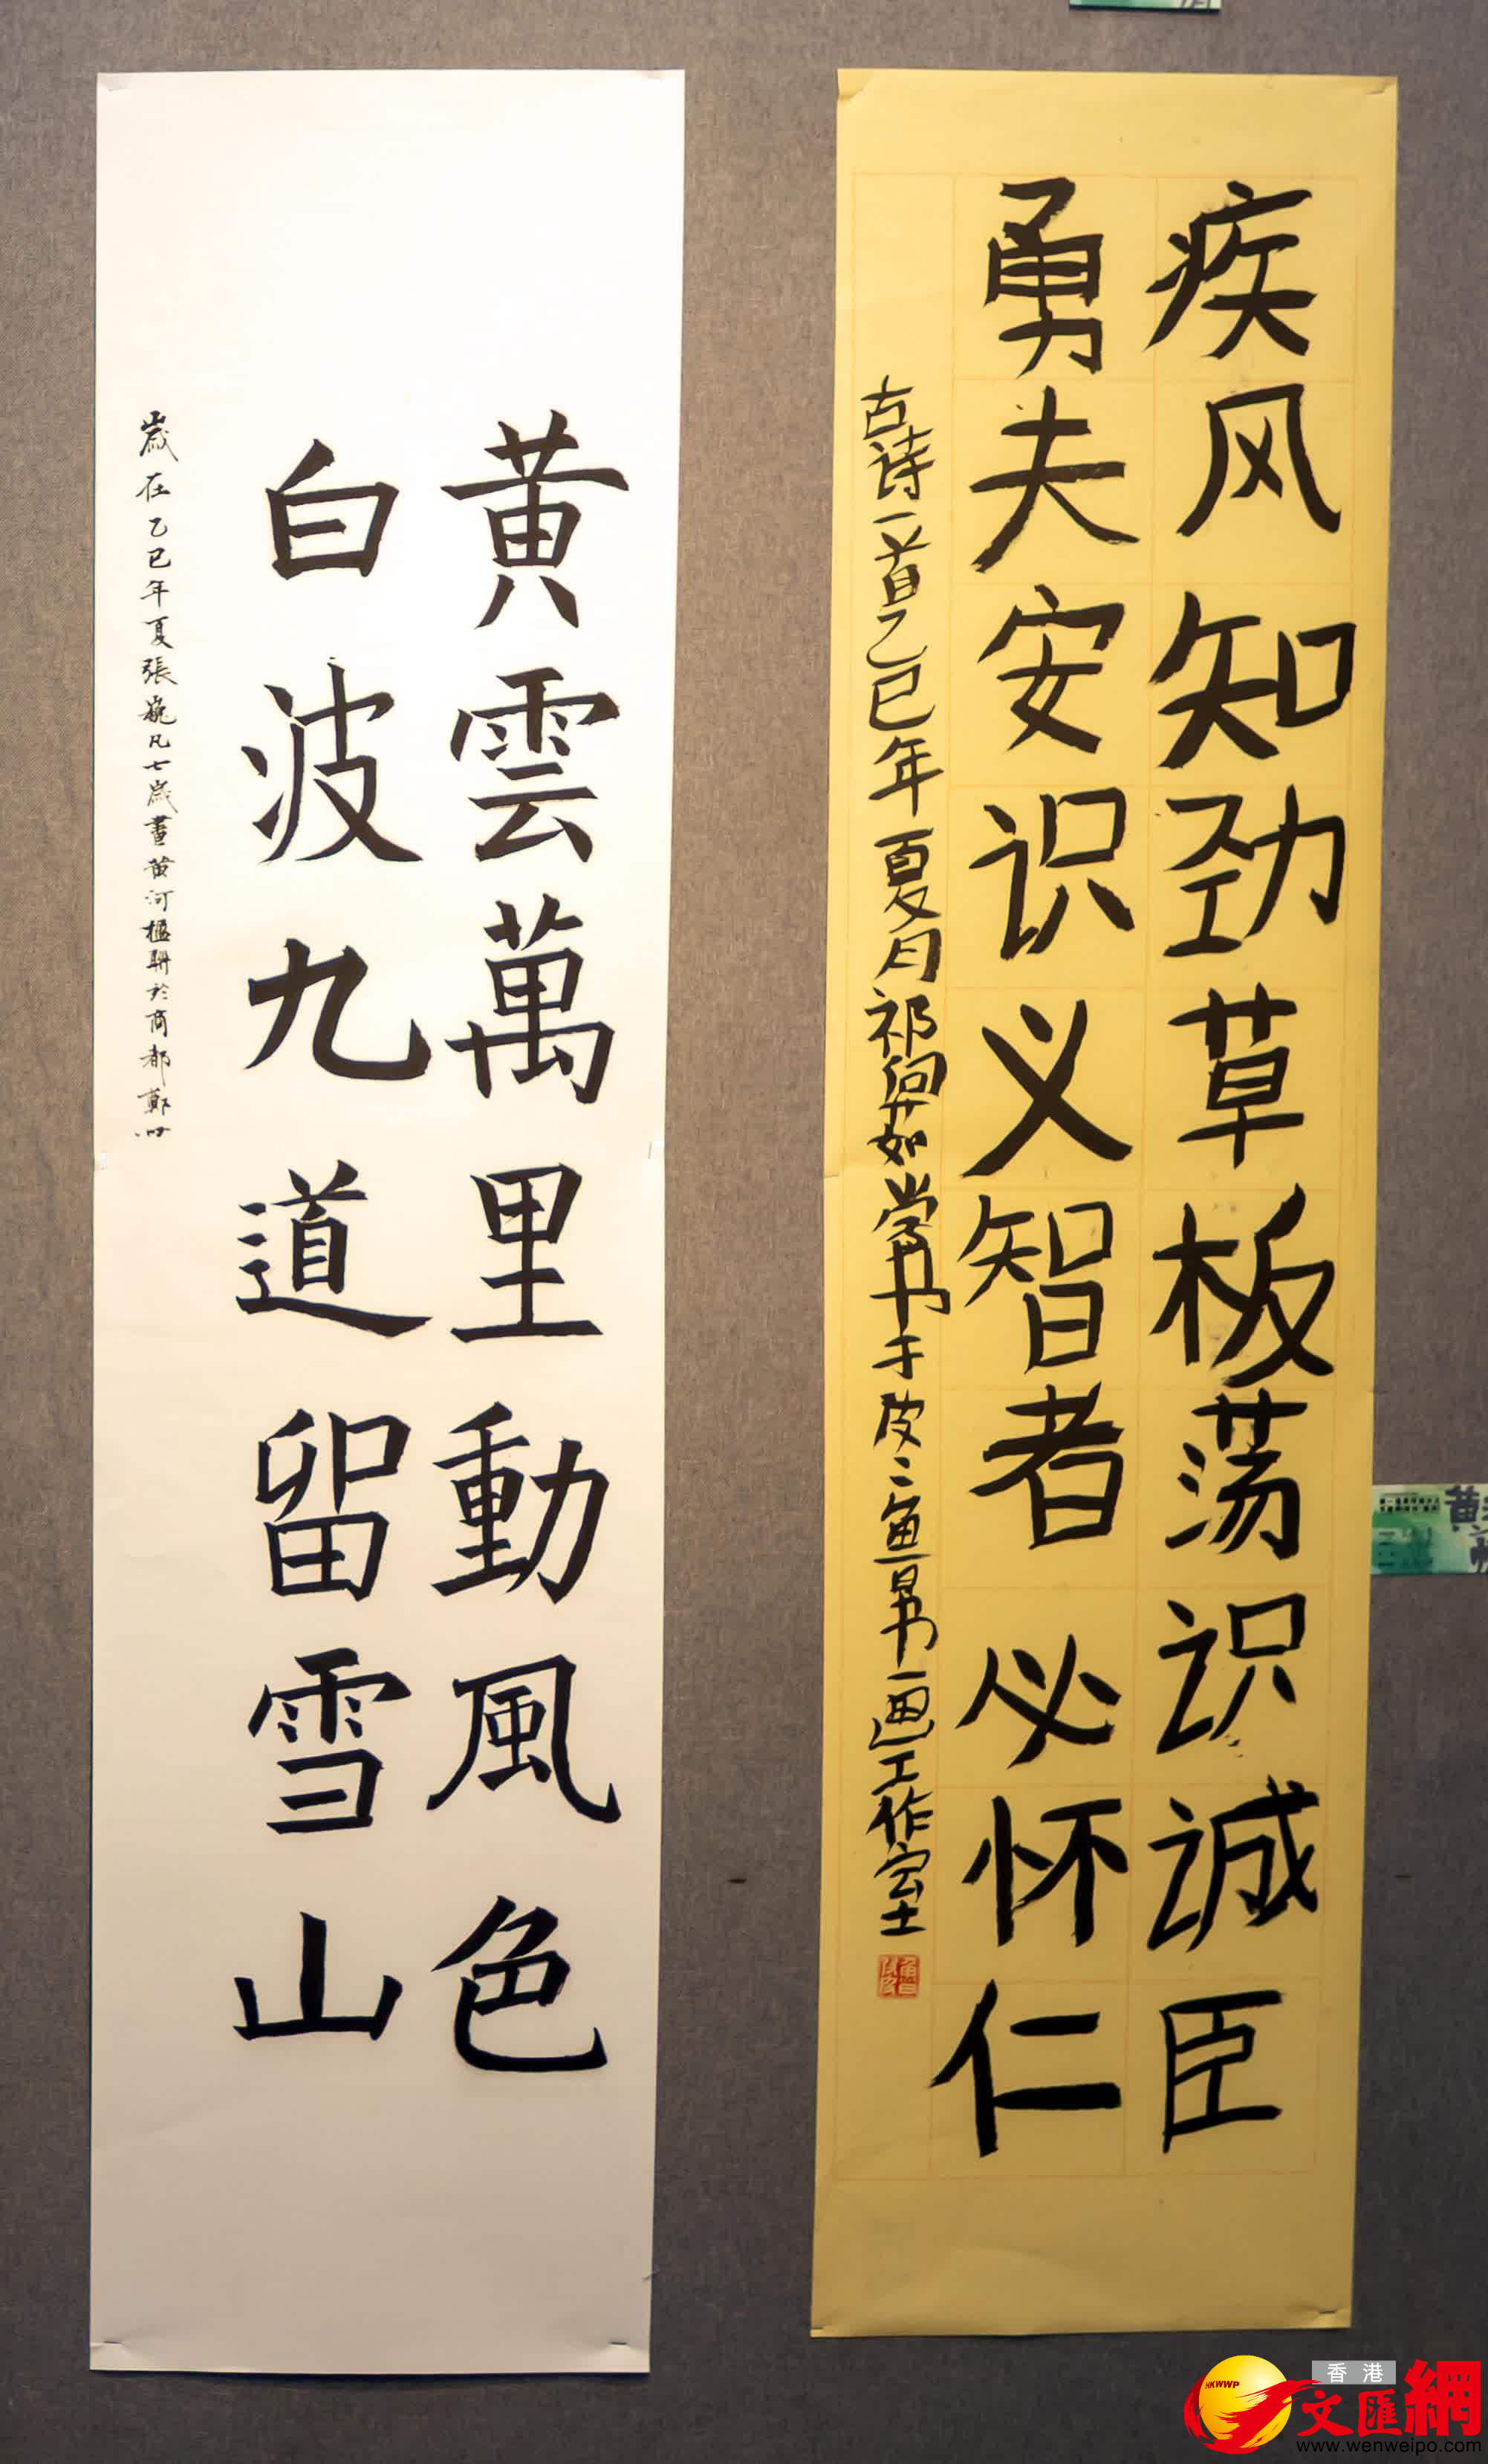 疾风知劲草板荡识诚臣
勇夫安识义智者必怀仁
古诗一首乙巳年夏月祁
书于皮皮鱼书画工作室
黄雲萬里動風色
白波九道留雪山
歲在乙巳年夏張巍凡七歲書黄河楹聯於商都鄭州
香港
文匯網
HKWWP
www.wenweipo.com